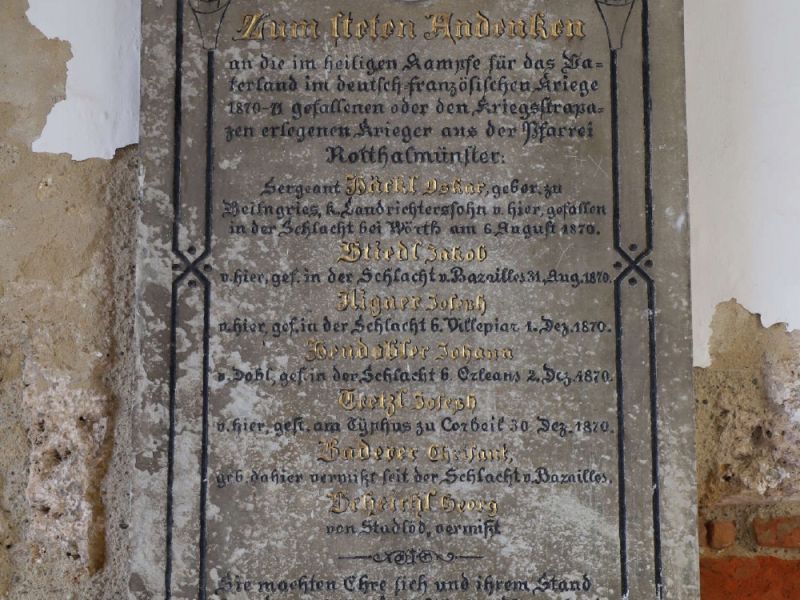 Zum steten Andenken
an die im heiligen Kampfe für das Va-
terland im deutsch-französischen Kriege
1870-71 gefallenen oder den Kriegsstrapa-
zen erlegenen Krieger aus der Pfarrei
Rotthalmünster:
Sergeant Häckl Oskar, gebor. zu
Beilngries, k. Landrichterssohn v. hier, gefallen
in der Schlacht bei Wörth am 6. August 1870.
Stiedl Jakob
v. hier, gef. in der Schlacht v. Bazailles 31. Aug. 1870.
Aigner Joseph
v. hier, gef. in der Schlacht b. Villepiar 1. Dez. 1870.
Bendobler Johann
v. Dobl, gef. in der Schlacht b. Orleans 2. Dez. 1870.
Joseph
v. hier, gest. am Typhus zu Corbeil 30. Dez. 1870.
Baderer Chrisant,
geb. dahier vermißt seit der Schlacht v. Bazailles.
Georg
von Stadlöd, vermißt
Sie machten Ehre sich und ihrem Stand